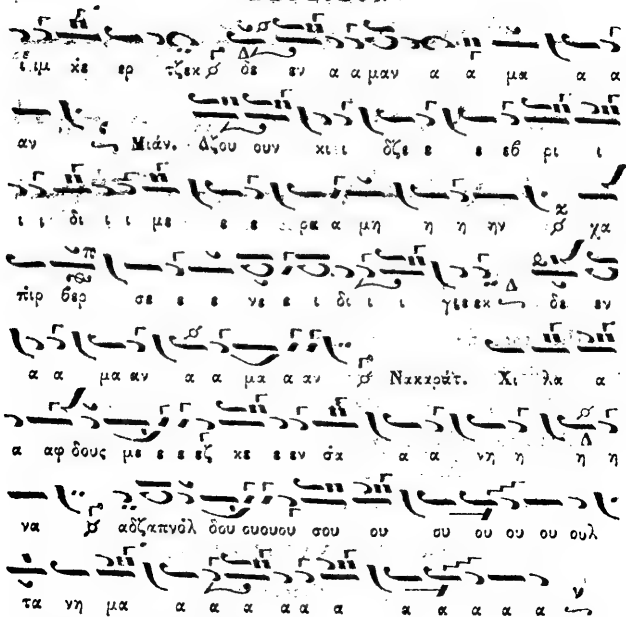 ἰμ κε ερ τζεκ δε εν α α μαν α α μα α α
αν Μιάν. Δζου ουν κι ι δζε ε ε εβ ρι ι
ι ι δι ι ι με ε ε ρα α μη η η ην χα
πὶρ βερ σε ε ε νε ε ι δι ι ι γιεεκ δε εν
α α μα αν α α μα α αν Νακαράτ. Χι λα α
α αφ δους με ε ε εζ κε ε εν σα α α νη η η η
να αδζαπνόλ δου ουουου σου ου συ ου ου ου ουλ
τα νη μα α α α αα α α α α α α